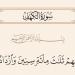 سورة الكهف
هِمْ ثَلَٰثَ مِا۟ئَةٍ سِنِينَ وَٱزْدَا